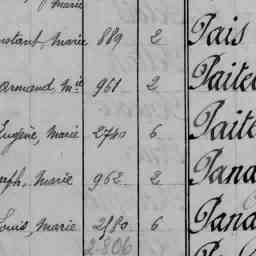 Marie
nstant, Marie 889 2 Pais
armand, Mie 961 2 Paite
Eugène, Marie 2740 6 Paite
eph, Marie 962 2 Pana
Louis, Marie 2180 6 Pana
2806